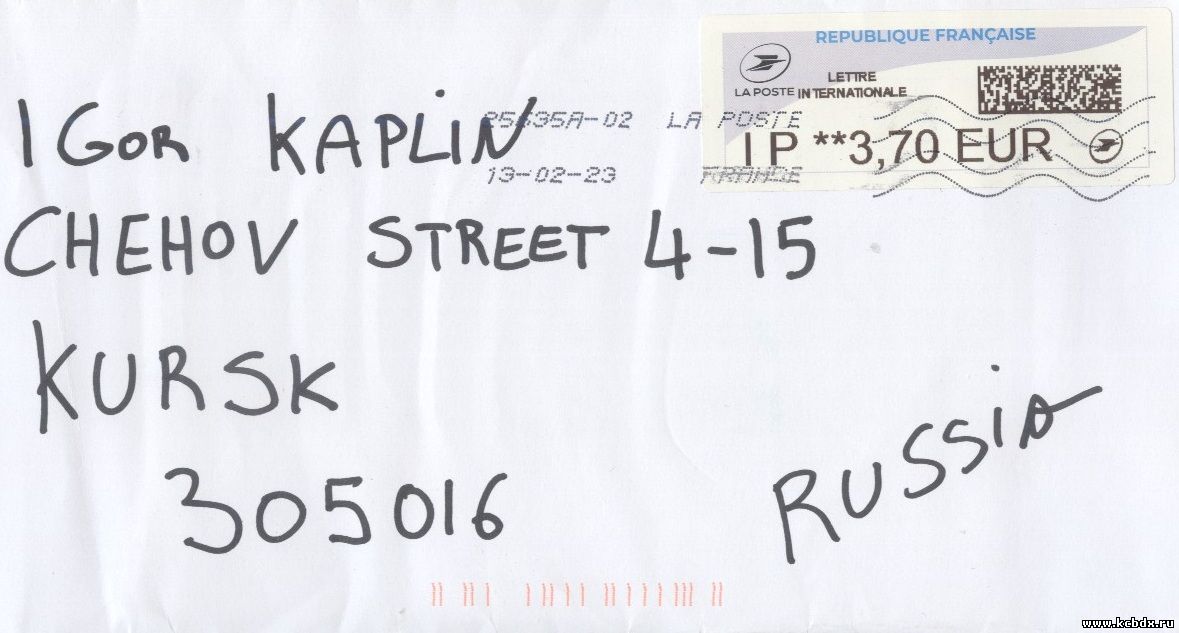 REPUBLIQUE FRANÇAISE
LETTRE
LA POSTE INTERNATIONALE
IP **3,70 EUR
25635A-02 LA POSTE
13-02-23 FRANCE
IGOR KAPLIN
CHEHOV STREET 4-15
KURSK
305016
RUSSIA
www.kcbdx.ru